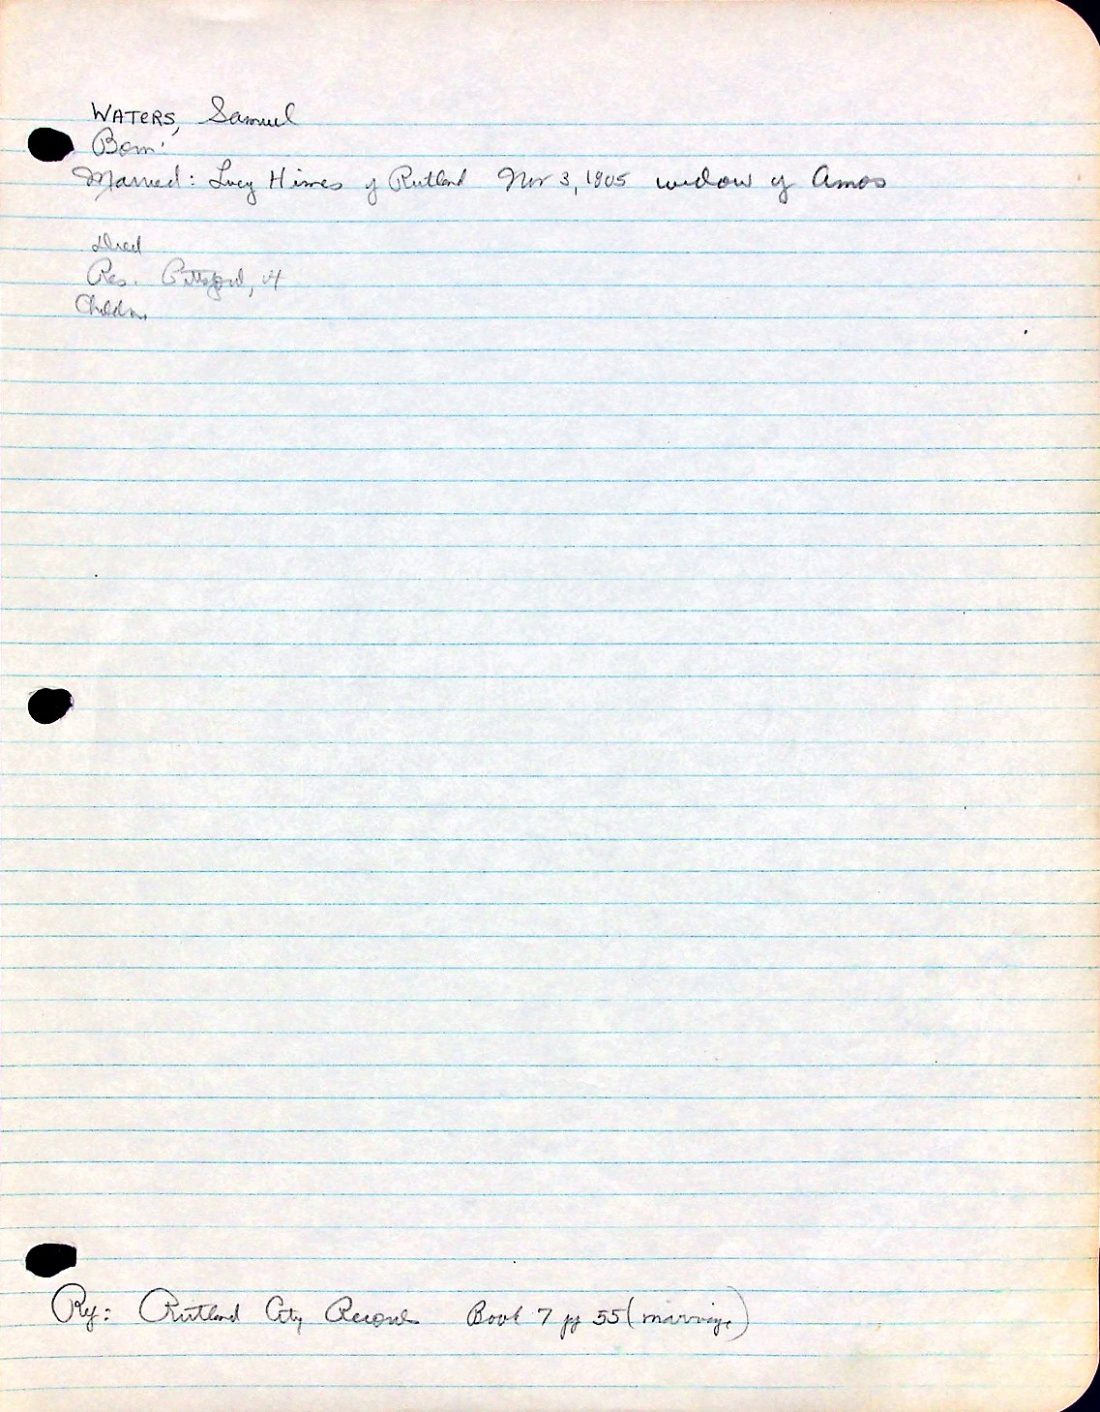 WATERS, Samuel
Born:
Married: Lucy Himes of Rutland Nov 3, 1805 widow of Amos
Died
Res. Pittsford, Vt
Children
Ref: Rutland City Records Book 7 pg 55 (marriage)